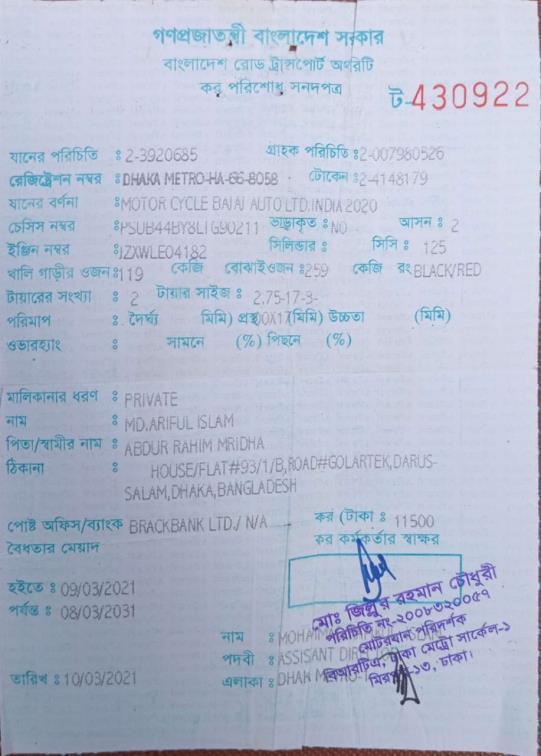 গণপ্রজাতন্ত্রী বাংলাদেশ সরকার
বাংলাদেশ রোড ট্রান্সপোর্ট অথরিটি
কর পরিশোধ সনদপত্র
ট-430922
যানের পরিচিতি : 2-3920685 গ্রাহক পরিচিতি : 2-007980526
রেজিষ্ট্রেশন নম্বর : DHAKA METRO-HA-66-8058 টোকেন : 2-4148179
যানের বর্ণনা : MOTOR CYCLE BAJAJ AUTO LTD.INDIA 2020
চেসিস নম্বর : PSUB44BY8LTG90211 ভাড়াকৃত : NO আসন : 2
ইঞ্জিন নম্বর : JZXWLE04182 সিলিন্ডার : সিসি : 125
খালি গাড়ীর ওজন : 119 কেজি বোঝাইওজন : 259 কেজি রং BLACK/RED
টায়ারের সংখ্যা : 2 টায়ার সাইজ : 2.75-17-3-
পরিমাপ : দৈর্ঘ্য মিমি) প্রস্থ 00X17 (মিমি) উচ্চতা (মিমি)
ওভারহ্যাং : সামনে (%) পিছনে (%)
মালিকানার ধরণ : PRIVATE
নাম : MD.ARIFUL ISLAM
পিতা/স্বামীর নাম : ABDUR RAHIM MRIDHA
ঠিকানা : HOUSE/FLAT#93/1/B,ROAD#GOLARTEK,DARUS-
SALAM,DHAKA,BANGLADESH
পোষ্ট অফিস/ব্যাংক BRACKBANK LTD./ N/A কর (টাকা : 11500
বৈধতার মেয়াদ কর কর্মকর্তার স্বাক্ষর
হইতে : 09/03/2021
পর্যন্ত : 08/03/2031
মোঃ জিল্লুর রহমান চৌধুরী
পরিচিতি নং-২০০৮৩২০০৫৭
মোটরযান পরিদর্শক
বিআরটিএ, ঢাকা মেট্রো সার্কেল-১
মিরপুর-১৩, ঢাকা।
নাম : MOHAMMAD
পদবী : ASSISANT DIRECTOR
তারিখ : 10/03/2021 এলাকা : DHAKA METRO-1